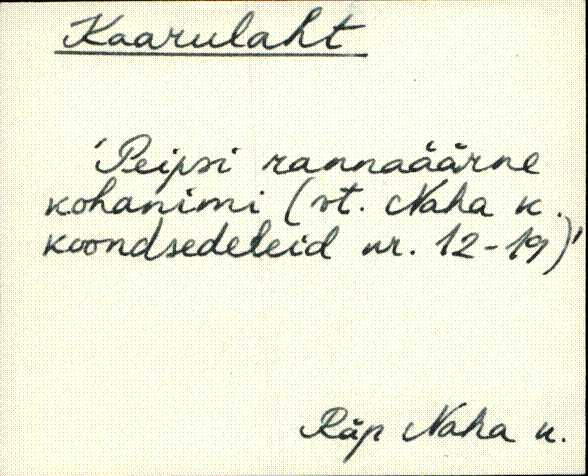 Kaarulaht
'Peipsi rannaäärne
kohanimi (vt. Naha k.
koondsedeleid nr. 12-19)'
Räp Naha k.